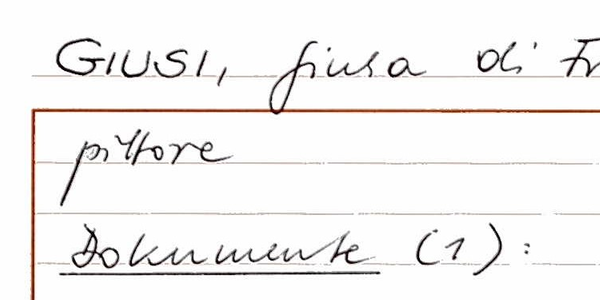 GIUSI, Giusa di Fr
pittore
Dokumente (1):